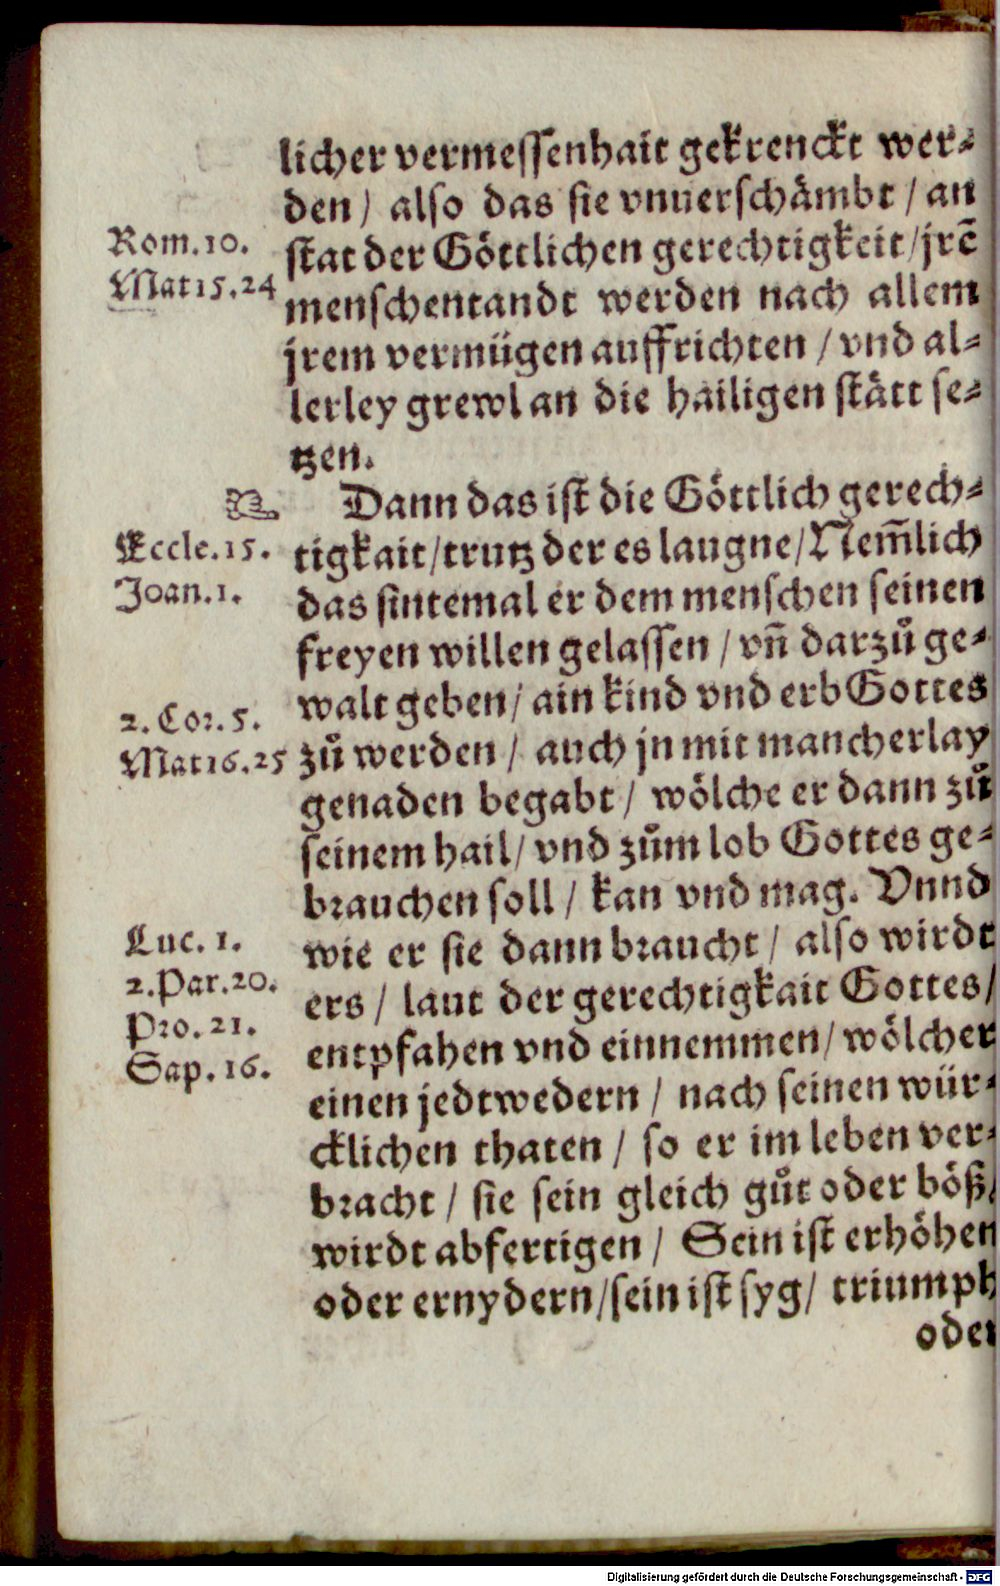 licher vermessenhait gekrenckt wer⸗
den / also das sie vnuerschåmbt / an
Rom.10.
stat der Göttlichen gerechtigkeit / jrē
Mat15.24
menschentandt werden nach allem
jrem vermügen auffrichten / vnd al⸗
lerley grewl an die hailigen stått se⸗
tzen.
Dann das ist die Göttlich gerech⸗
Eccle.15.
tigkait / trutz der es laugne / Nem̄lich
Joan.1.
das sintemal er dem menschen seinen
freyen willen gelassen / vn̄ darzů ge⸗
walt geben / ain kind vnd erb Gottes
2. Cor. 5.
zů werden / auch jn mit mancherlay
Mat16.25
genaden begabt / wölche er dann zů
seinem hail / vnd zům lob Gottes ge⸗
brauchen soll / kan vnd mag. Vnnd
Luc. 1.
wie er sie dann braucht / also wirdt
2.Par.20.
ers / laut der gerechtigkait Gottes /
Pro. 21.
entpfahen vnd einnemmen / wölcher
Sap. 16.
einen jedtwedern / nach seinen wür⸗
cklichen thaten / so er im leben ver⸗
bracht / sie sein gleich gůt oder böß /
wirdt abfertigen / Sein ist erhöhen
oder ernydern / sein ist syg / triumph
oder
Digitalisierung gefördert durch die Deutsche Forschungsgemeinschaft - DFG